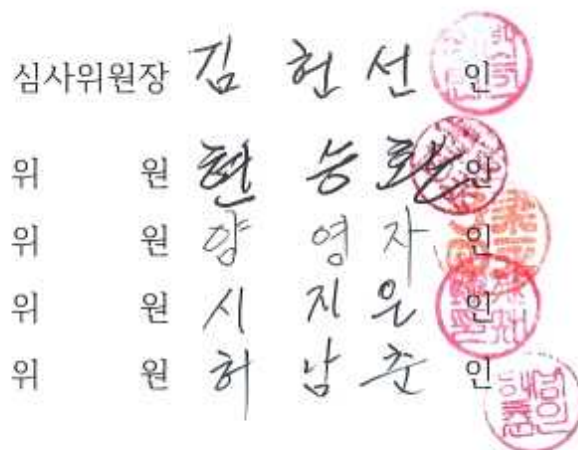 심사위원장 김 헌 선 인
위 원 현 승 환 인
위 원 양 영 자 인
위 원 시 지 은 인
위 원 허 남 춘 인